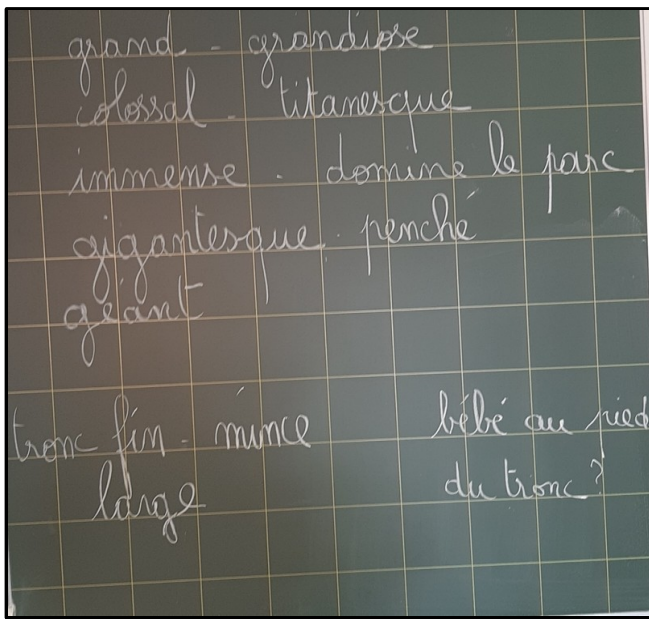 grand - grandiose
colossal - titanesque
immense - domine le parc
gigantesque - penché
géant
tronc fin - mince
large
bébé au pied
du tronc?